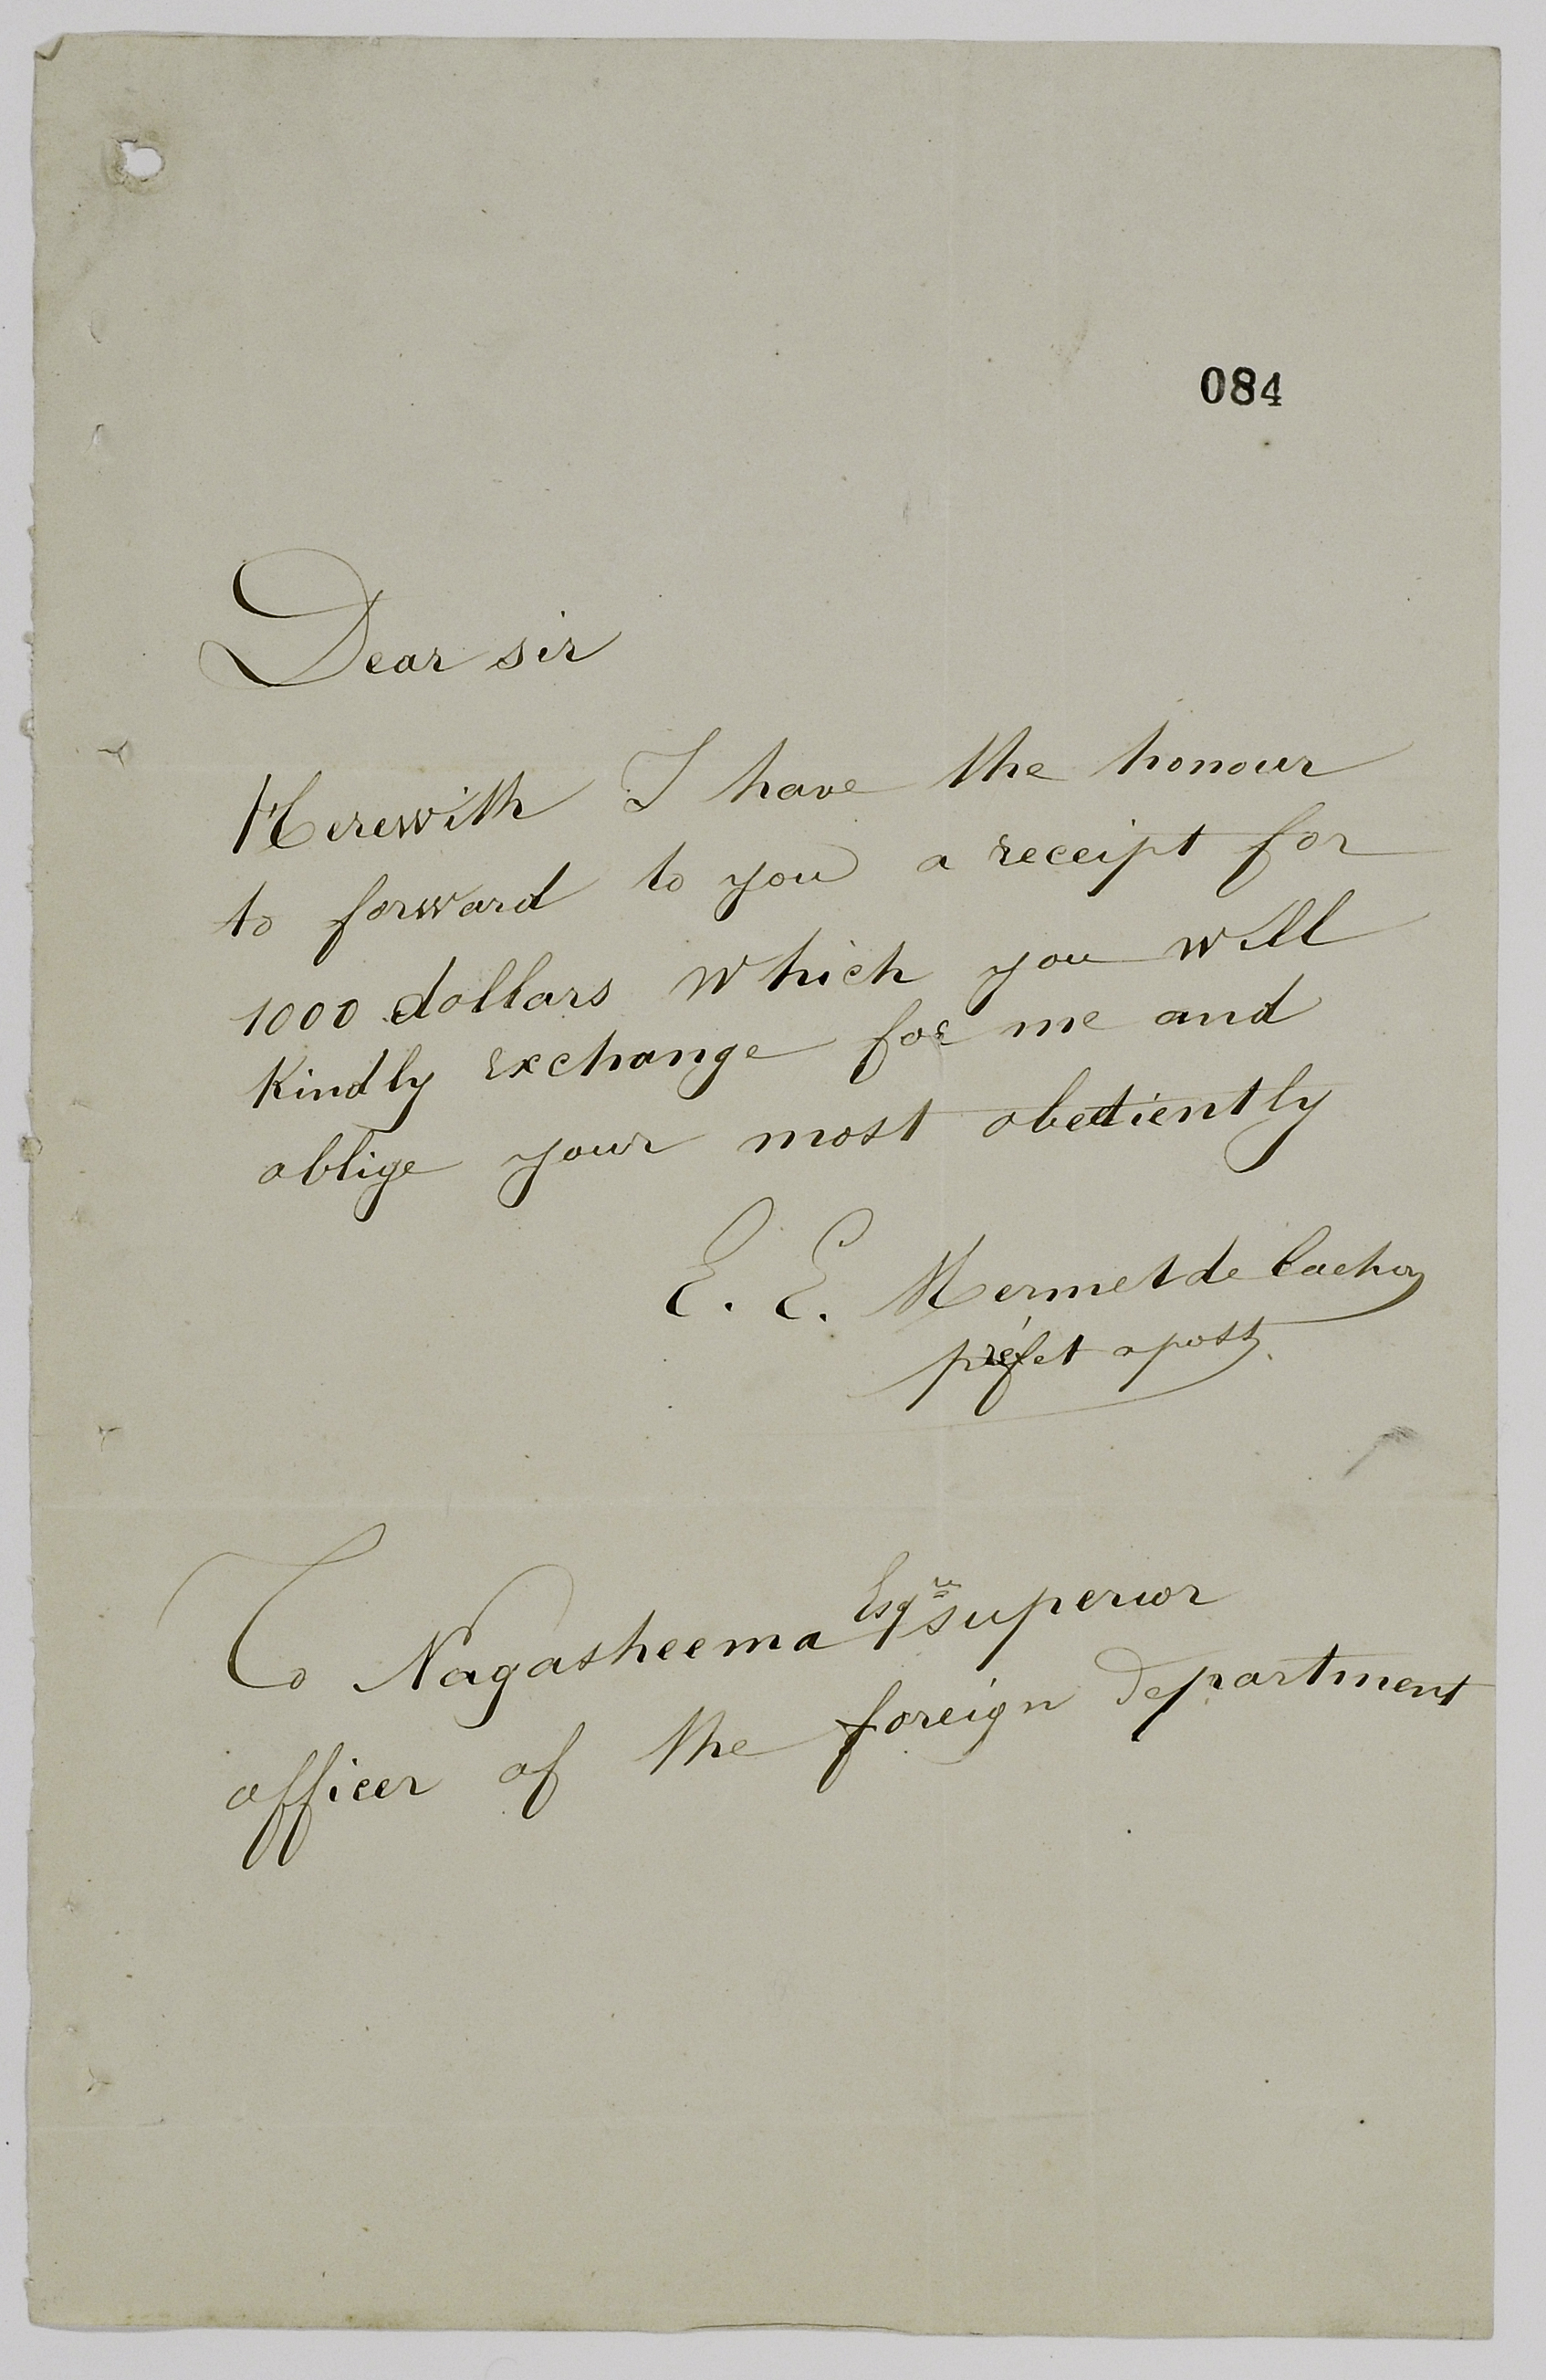 084
Dear sir
Herewith I have the honour
to forward to you a receipt for
1000 dollars which you will
Kindly exchange for me and
oblige your most obediently
E. E. Mermet de Cachon
préfet apost.
To Nagasheema Esqre superior
officer of the foreign department